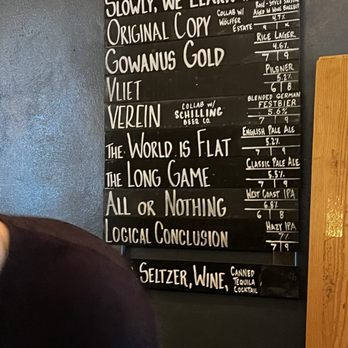 SLOWLY, WE LEARN
ROSÉ-STYLE SAISON
AGED IN WINE BARRELS
4.7%
ORIGINAL COPY
COLLAB W/
WÖLFFER
ESTATE
RICE LAGER
4.6%
GOWANUS GOLD
7 | 9
PILSNER
5.2%
VLIET
6 | 8
BLENDED GERMAN
FESTBIER
5.6%
VEREIN
COLLAB W/
SCHILLING
BEER CO.
7 | 9
ENGLISH PALE ALE
5.2%
THE WORLD IS FLAT
7 | 9
CLASSIC PALE ALE
5.5%
THE LONG GAME
7 | 9
WEST COAST IPA
6.8%
ALL OR NOTHING
6 | 8
HAZY IPA
7%
LOGICAL CONCLUSION
7 | 9
SELTZER, WINE,
CANNED
TEQUILA
COCKTAIL